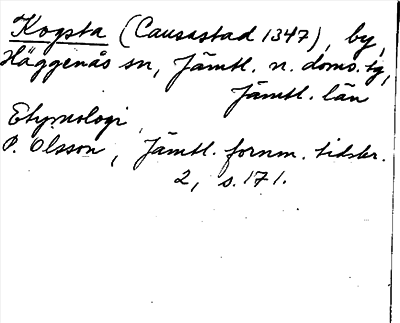 Kogsta (Causastad 1347), by,
Häggenås sn, Jämtl. n. doms. tg,
Jämtl. län
Etymologi
P. Olsson, Jämtl. fornm. tidskr.
2, s. 171.